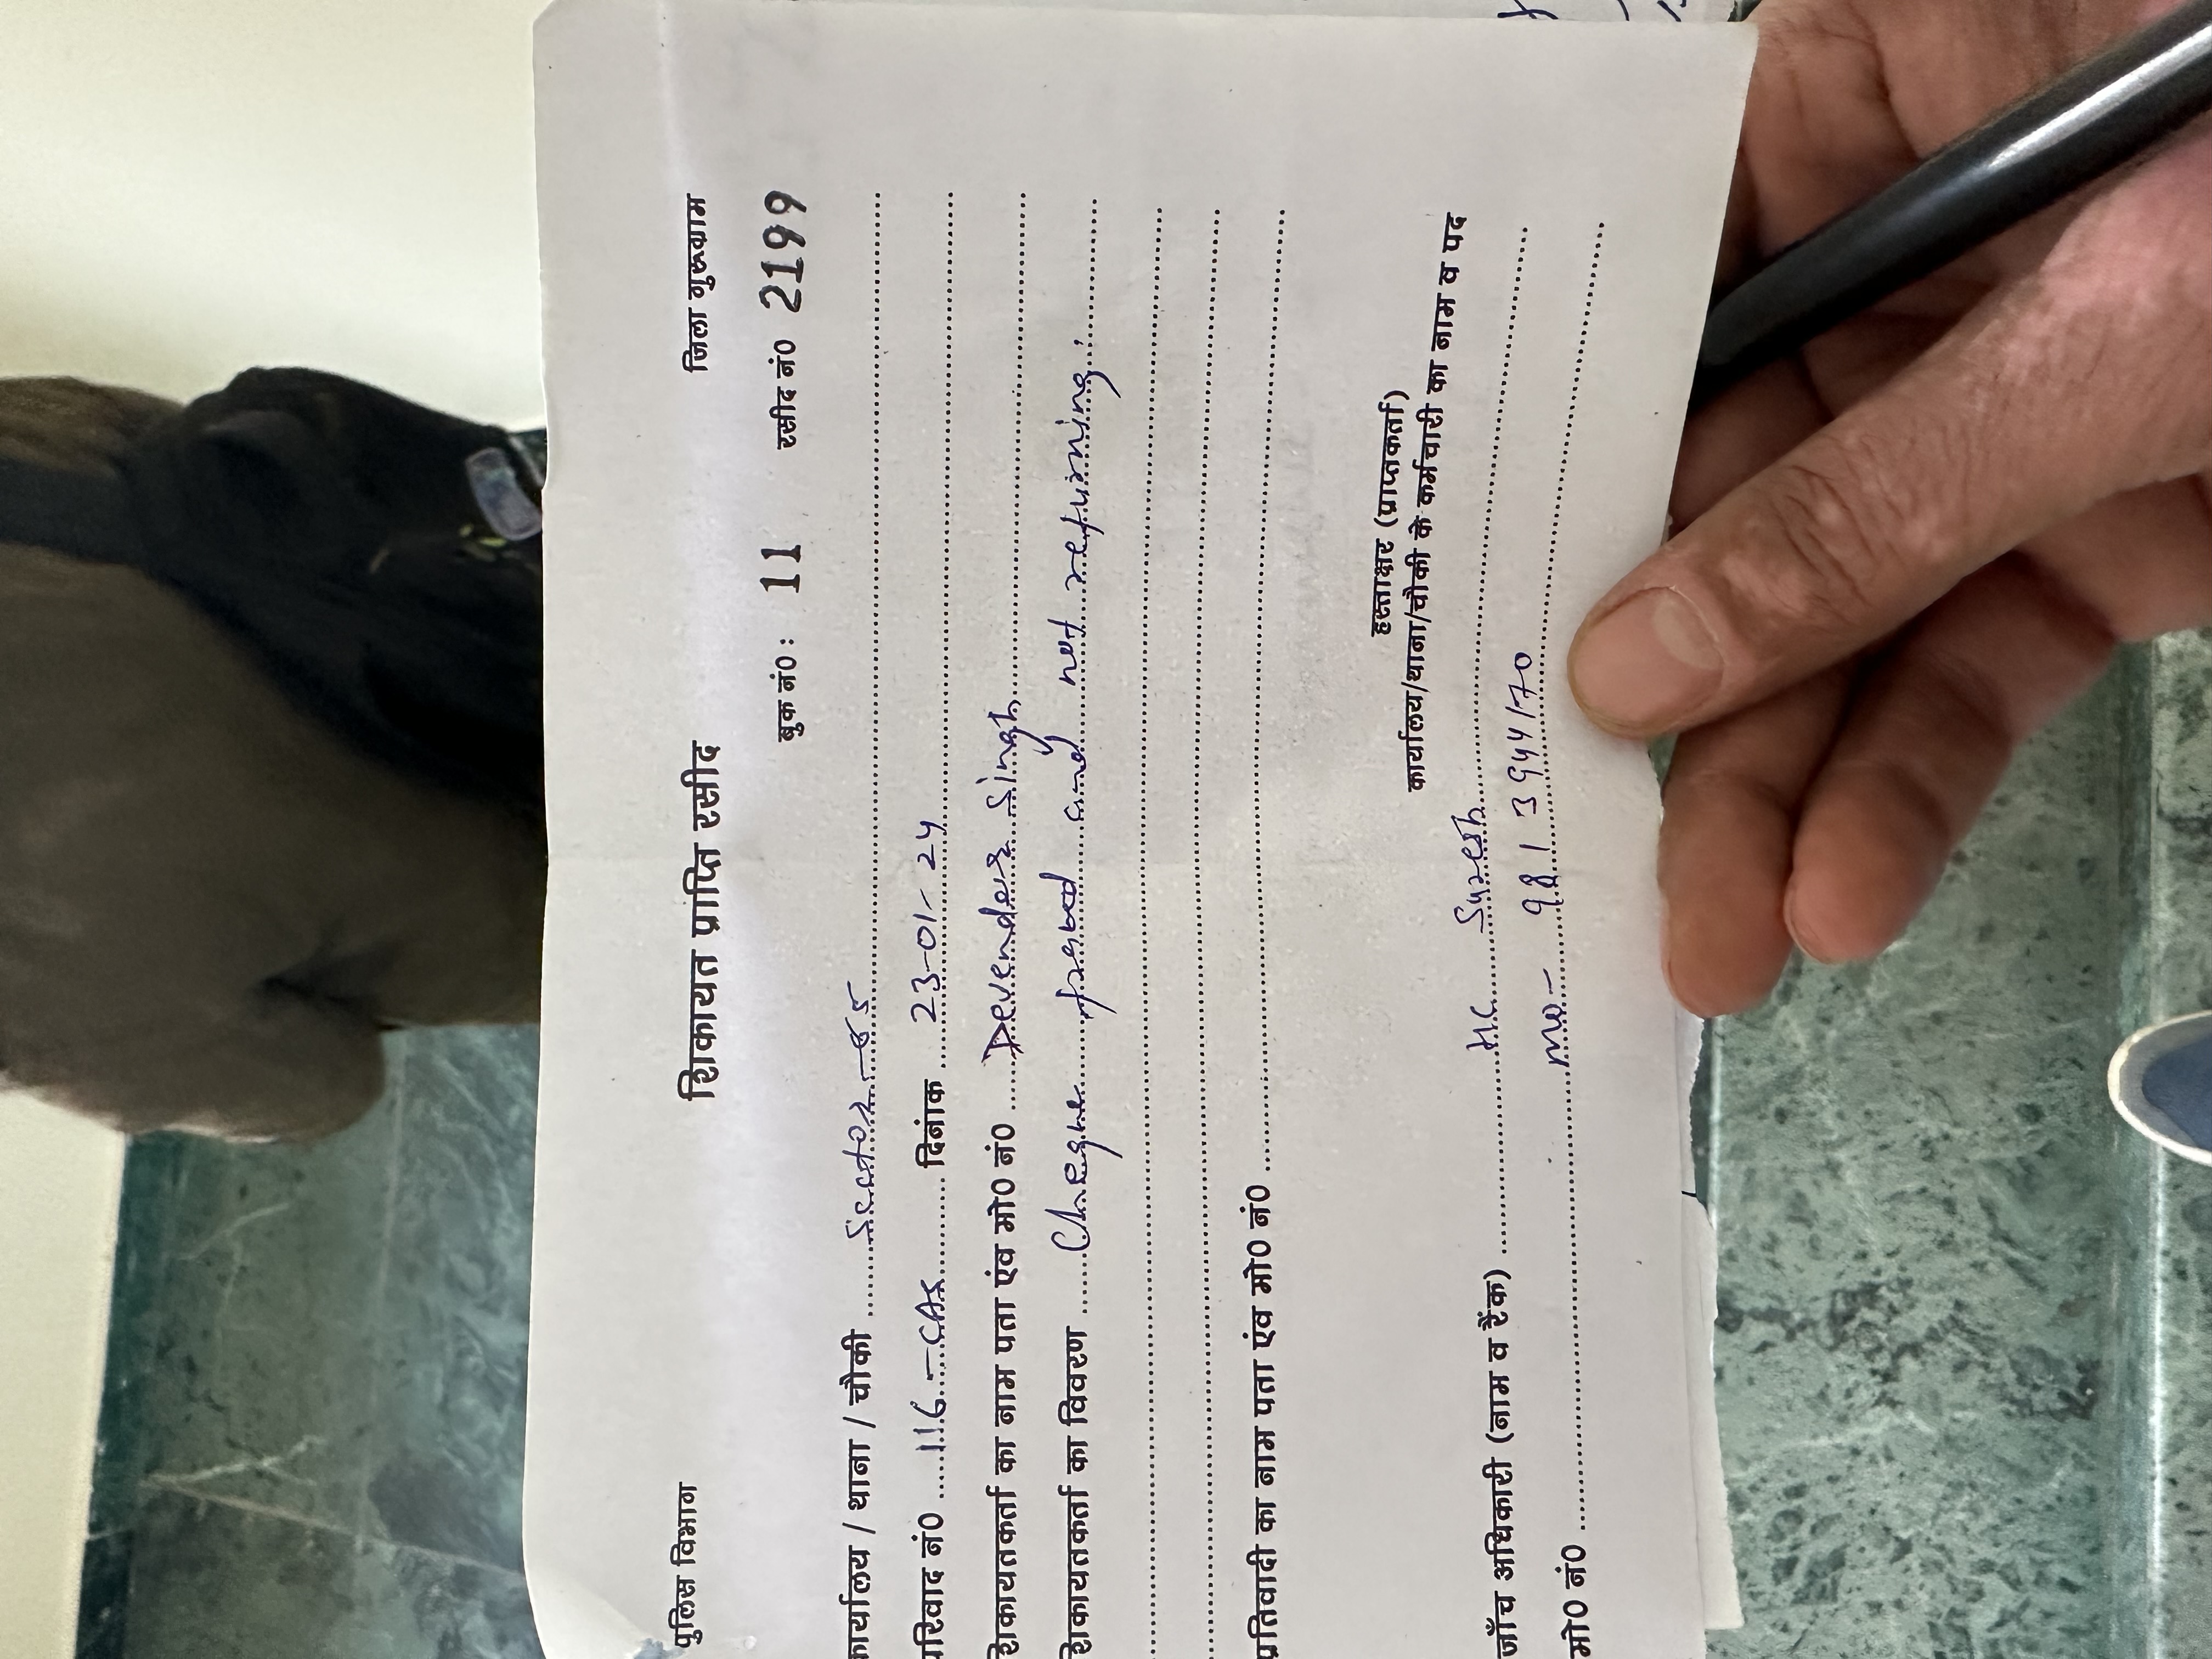 पुलिस विभाग शिकायत प्राप्ति रसीद जिला गुरूग्राम
बुक नं0: 11 रसीद नं0 2199
कार्यालय / थाना / चौकी ........Sector-65........
परिवाद नं0 .....116-CAS........ दिनांक ....23-01-24........
शिकायतकर्ता का नाम पता एंव मो0 नं0 .....Devender Singh........
शिकायतकर्ता का विवरण .....Cheque fraud and not returning.........
प्रतिवादी का नाम पता एंव मो0 नं0 ........
हस्ताक्षर (प्राप्तकर्ता)
कार्यालय/थाना/चौकी के कर्मचारी का नाम व पद
जाँच अधिकारी (नाम व रैंक) ........HC Suresh........
मो0 नं0 ........mo- 981 3944170........